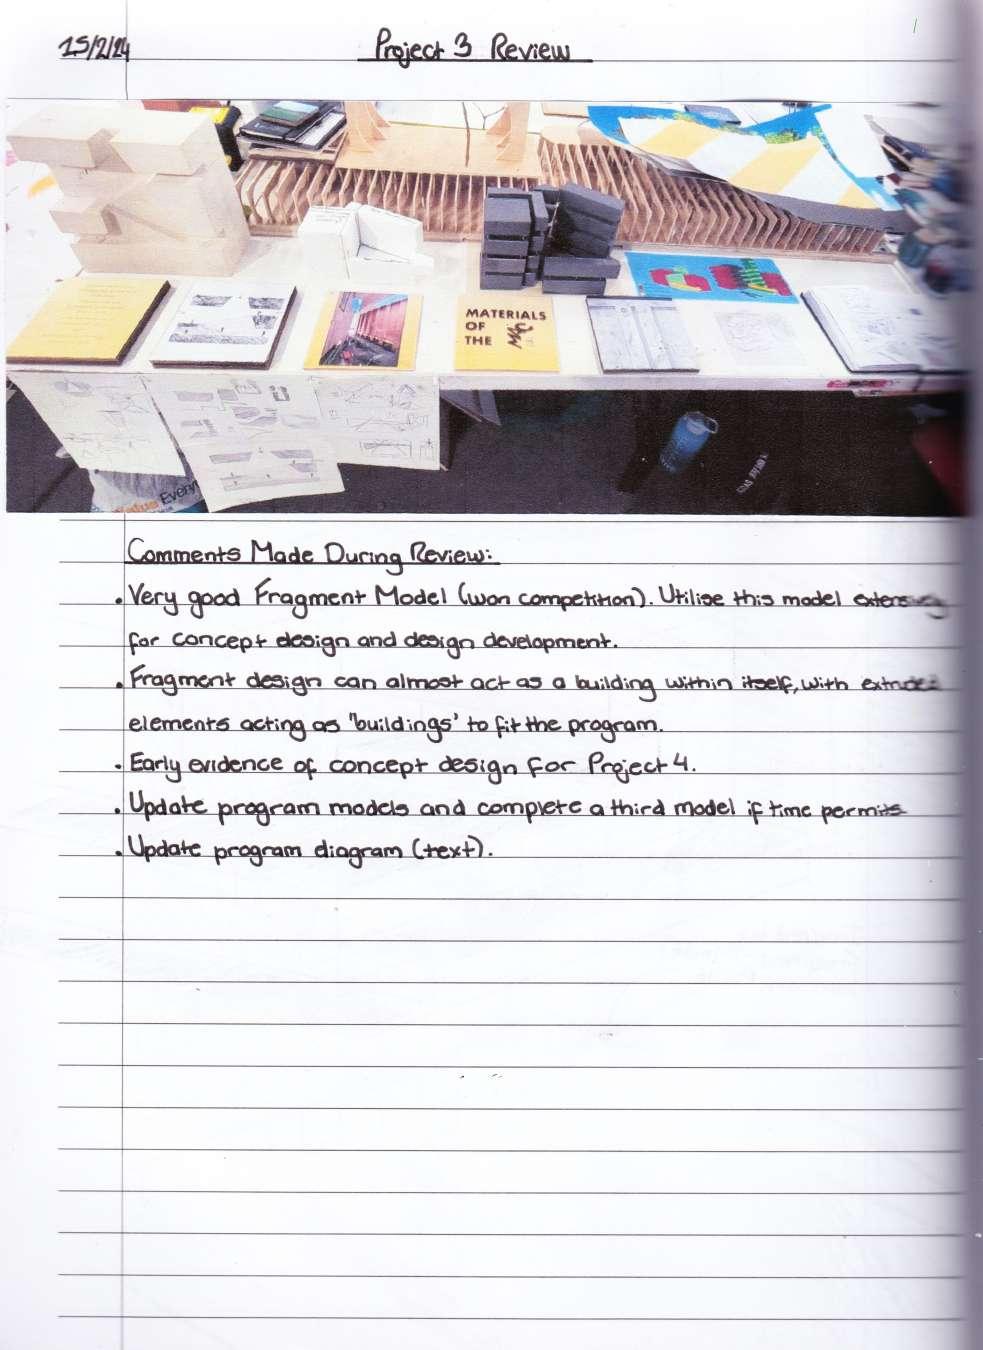 15/2/24
Project 3 Review
MATERIALS
OF
THE MAC
Comments Made During Review:
• Very good Fragment Model (won competition). Utilise this model extensively
for concept design and design development.
• Fragment design can almost act as a building within itself, with extruded
elements acting as 'buildings' to fit the program.
• Early evidence of concept design for Project 4.
• Update program models and complete a third model if time permits
• Update program diagram (text).